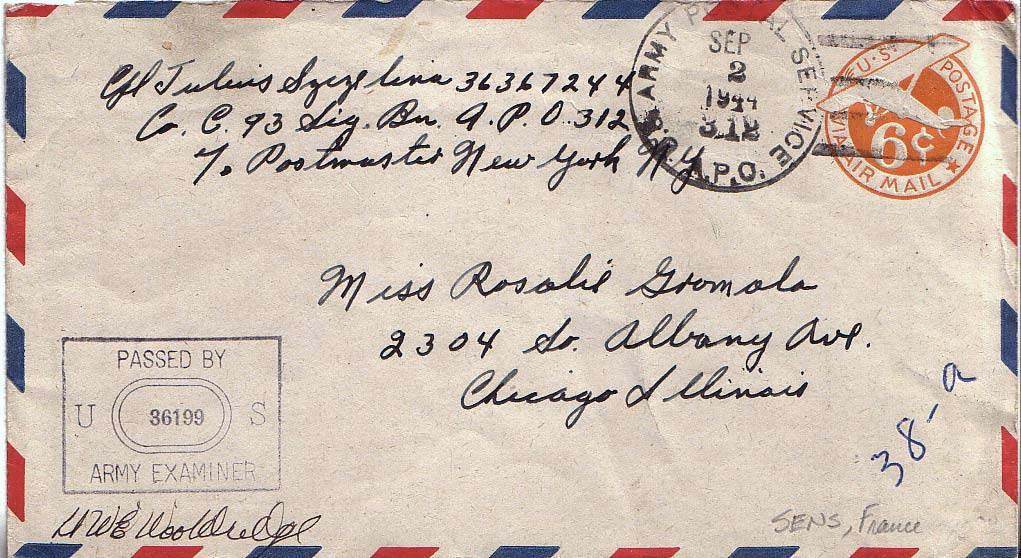 Cpl Julius Szczylina 36367244
Co. C. 93 Sig. Bn. A.P.O. 312
℅ Postmaster New York N.Y.
U.S. ARMY POSTAL SERVICE
SEP
2
1944
312
A.P.O.
U.S. POSTAGE
6¢
VIA AIR MAIL
Miss Rosalie Gromala
2304 So. Albany Ave.
Chicago Illinois
PASSED BY
U 36199 S
ARMY EXAMINER
38-a
SENS, France